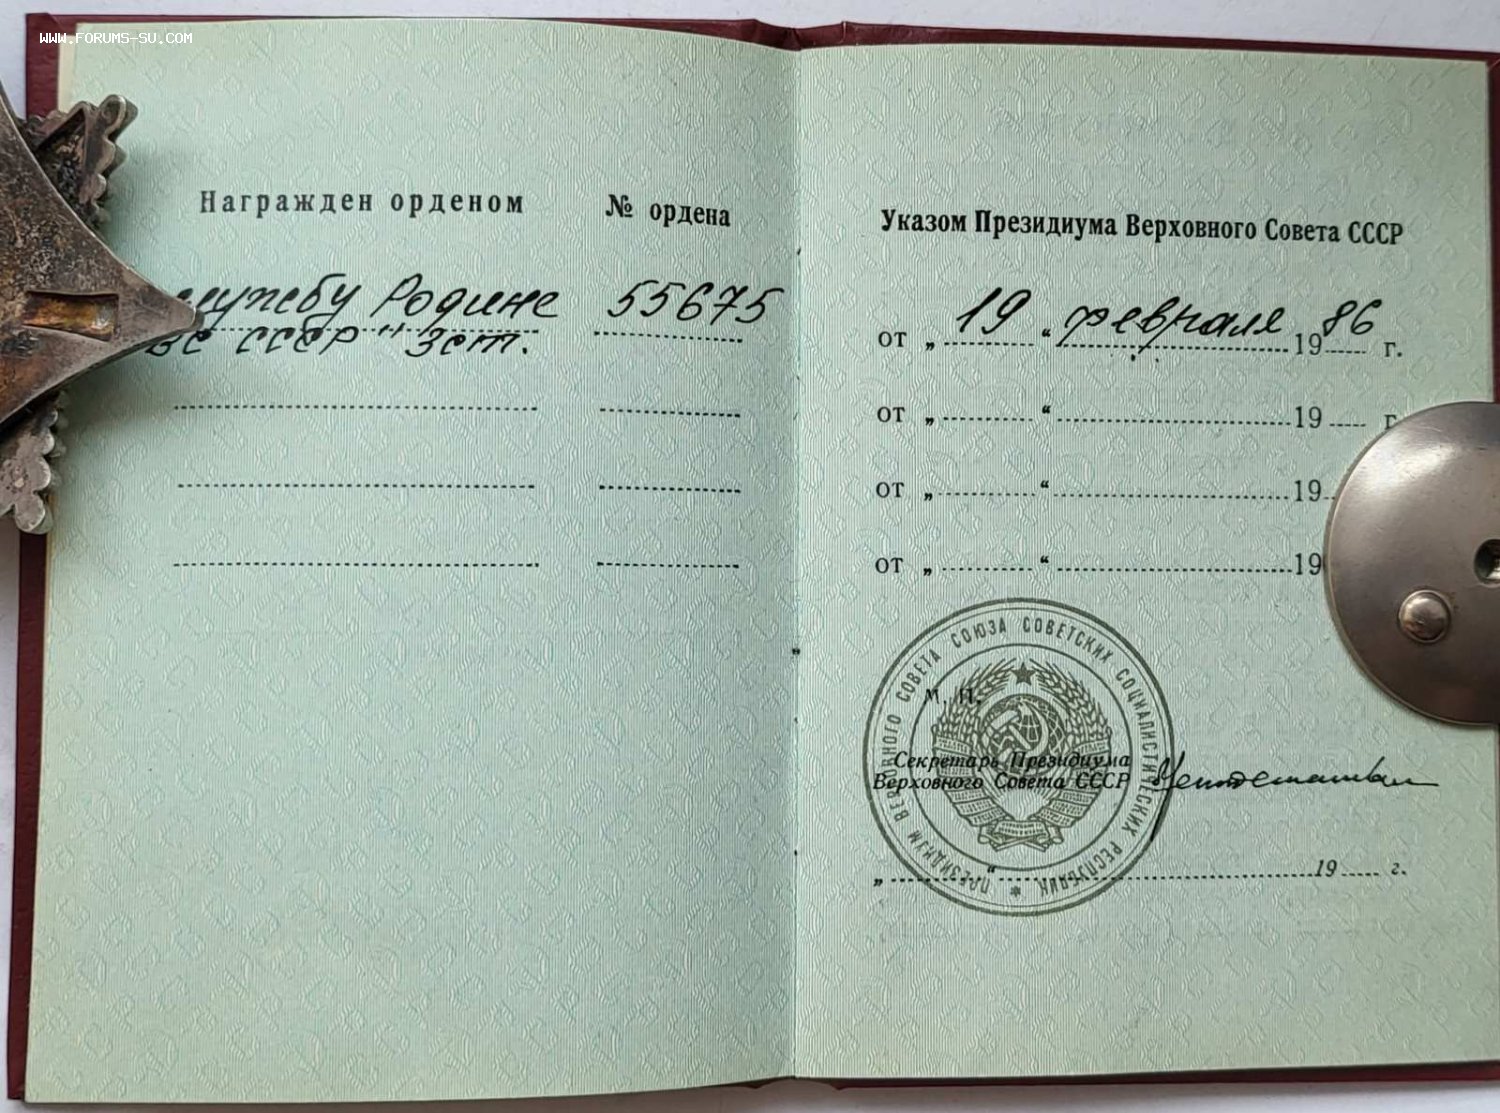 WWW.FORUMS-SU.COM
Награжден орденом
№ ордена
службу Родине
55675
ВС СССР" 3 ст.
Указом Президиума Верховного Совета СССР
от „ 19 “ февраля 19 86 г.
от „ “ 19 г.
от „ “ 19
от „ “ 19
ПРЕЗИДИУМ ВЕРХОВНОГО СОВЕТА СОЮЗА СОВЕТСКИХ СОЦИАЛИСТИЧЕСКИХ РЕСПУБЛИК
М. П.
Секретарь Президиума
Верховного Совета СССР
„ “ 19 г.